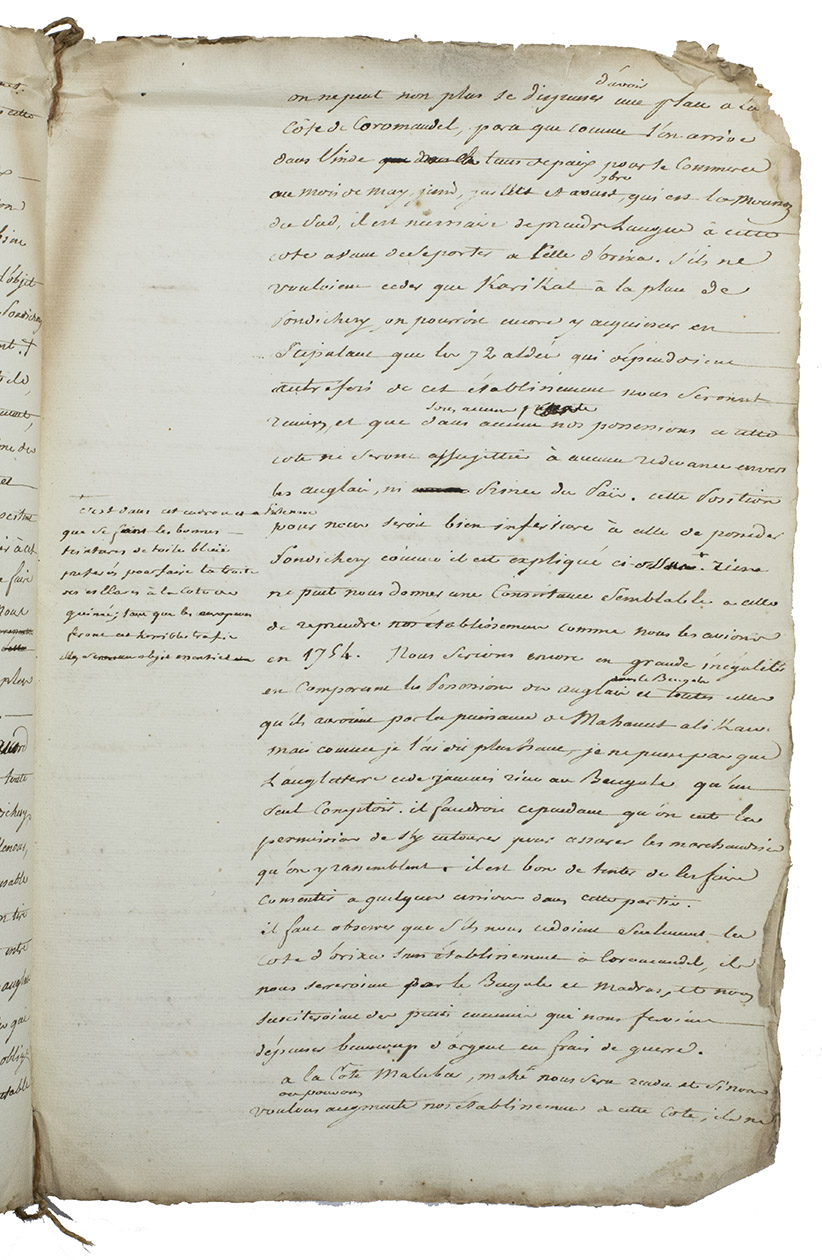 d'avoir
on ne peut non plus se dispenser une place a la
Côte de Coromandel, parce que comme l'on arrive
dans l'inde tems de paix pour le Commerce
au mois de may, juin, juillet et aoust, qui est la Mousson
du Sud, il est necessaire de prendre Langue à cette
cote avant de se porter a celle d'orixa. s'ils ne
vouloient ceder que Karikal à la place de
Pondichery, on pourroit encore y acquiescer en
Stipulant que les 72 aldée qui dépendoient
autrefois de cet établissement nous seront
remises, et que dans aucune nos possessions a cette
cote ne seront assujettie à aucune redevance envers
les anglais, ni Prince du Païs. cette Position
pour nous seroit bien inferieure à celle de posseder
Pondichery comme il est expliqué ci rien
ne peut nous donner une Consistance Semblable a celle
de reprendre nos établissement comme nous les avions
en 1754. Nous serions encore en grande inégalité
dans le Bengale
en Comparant les Possessions des anglais et toutes celles
qu'ils auroient par la puissance de Mahamet ali Kan.
mais comme je l'ai dit plus haut, je ne pense pas que
L'angleterre cede jamais rien au Bengale qu'un
Seul Comptoir. il faudroit cependant qu'on eut la
permission de s'y entourer pour assurer les marchandises
qu'on y rassemblent. il est bon de tenter de les faire
Consentir a quelques dans cette partie.
il faut observer que s'ils nous cedoient seulement la
Cote d'orixa sans établissement a Coromandel, ils
nous serreroient par le Bengale et Madras, et nous
susciteroient des petits ennemis qui nous feroient
dépenser beaucoup d'argent en frais de guerre.
a la Côte Malabar, mahé nous sera rendu et si nous
ou pouvons
voulons augmenter nos établissement a cette Cote, ils ne
C'est dans cet endroit
que se font les bonnes
teintures de toile bleue
préférés pour faire la traite
des esclaves à la Cote de
guinée; tant que les europeens
feront cet horrible trafic
objet essentiel